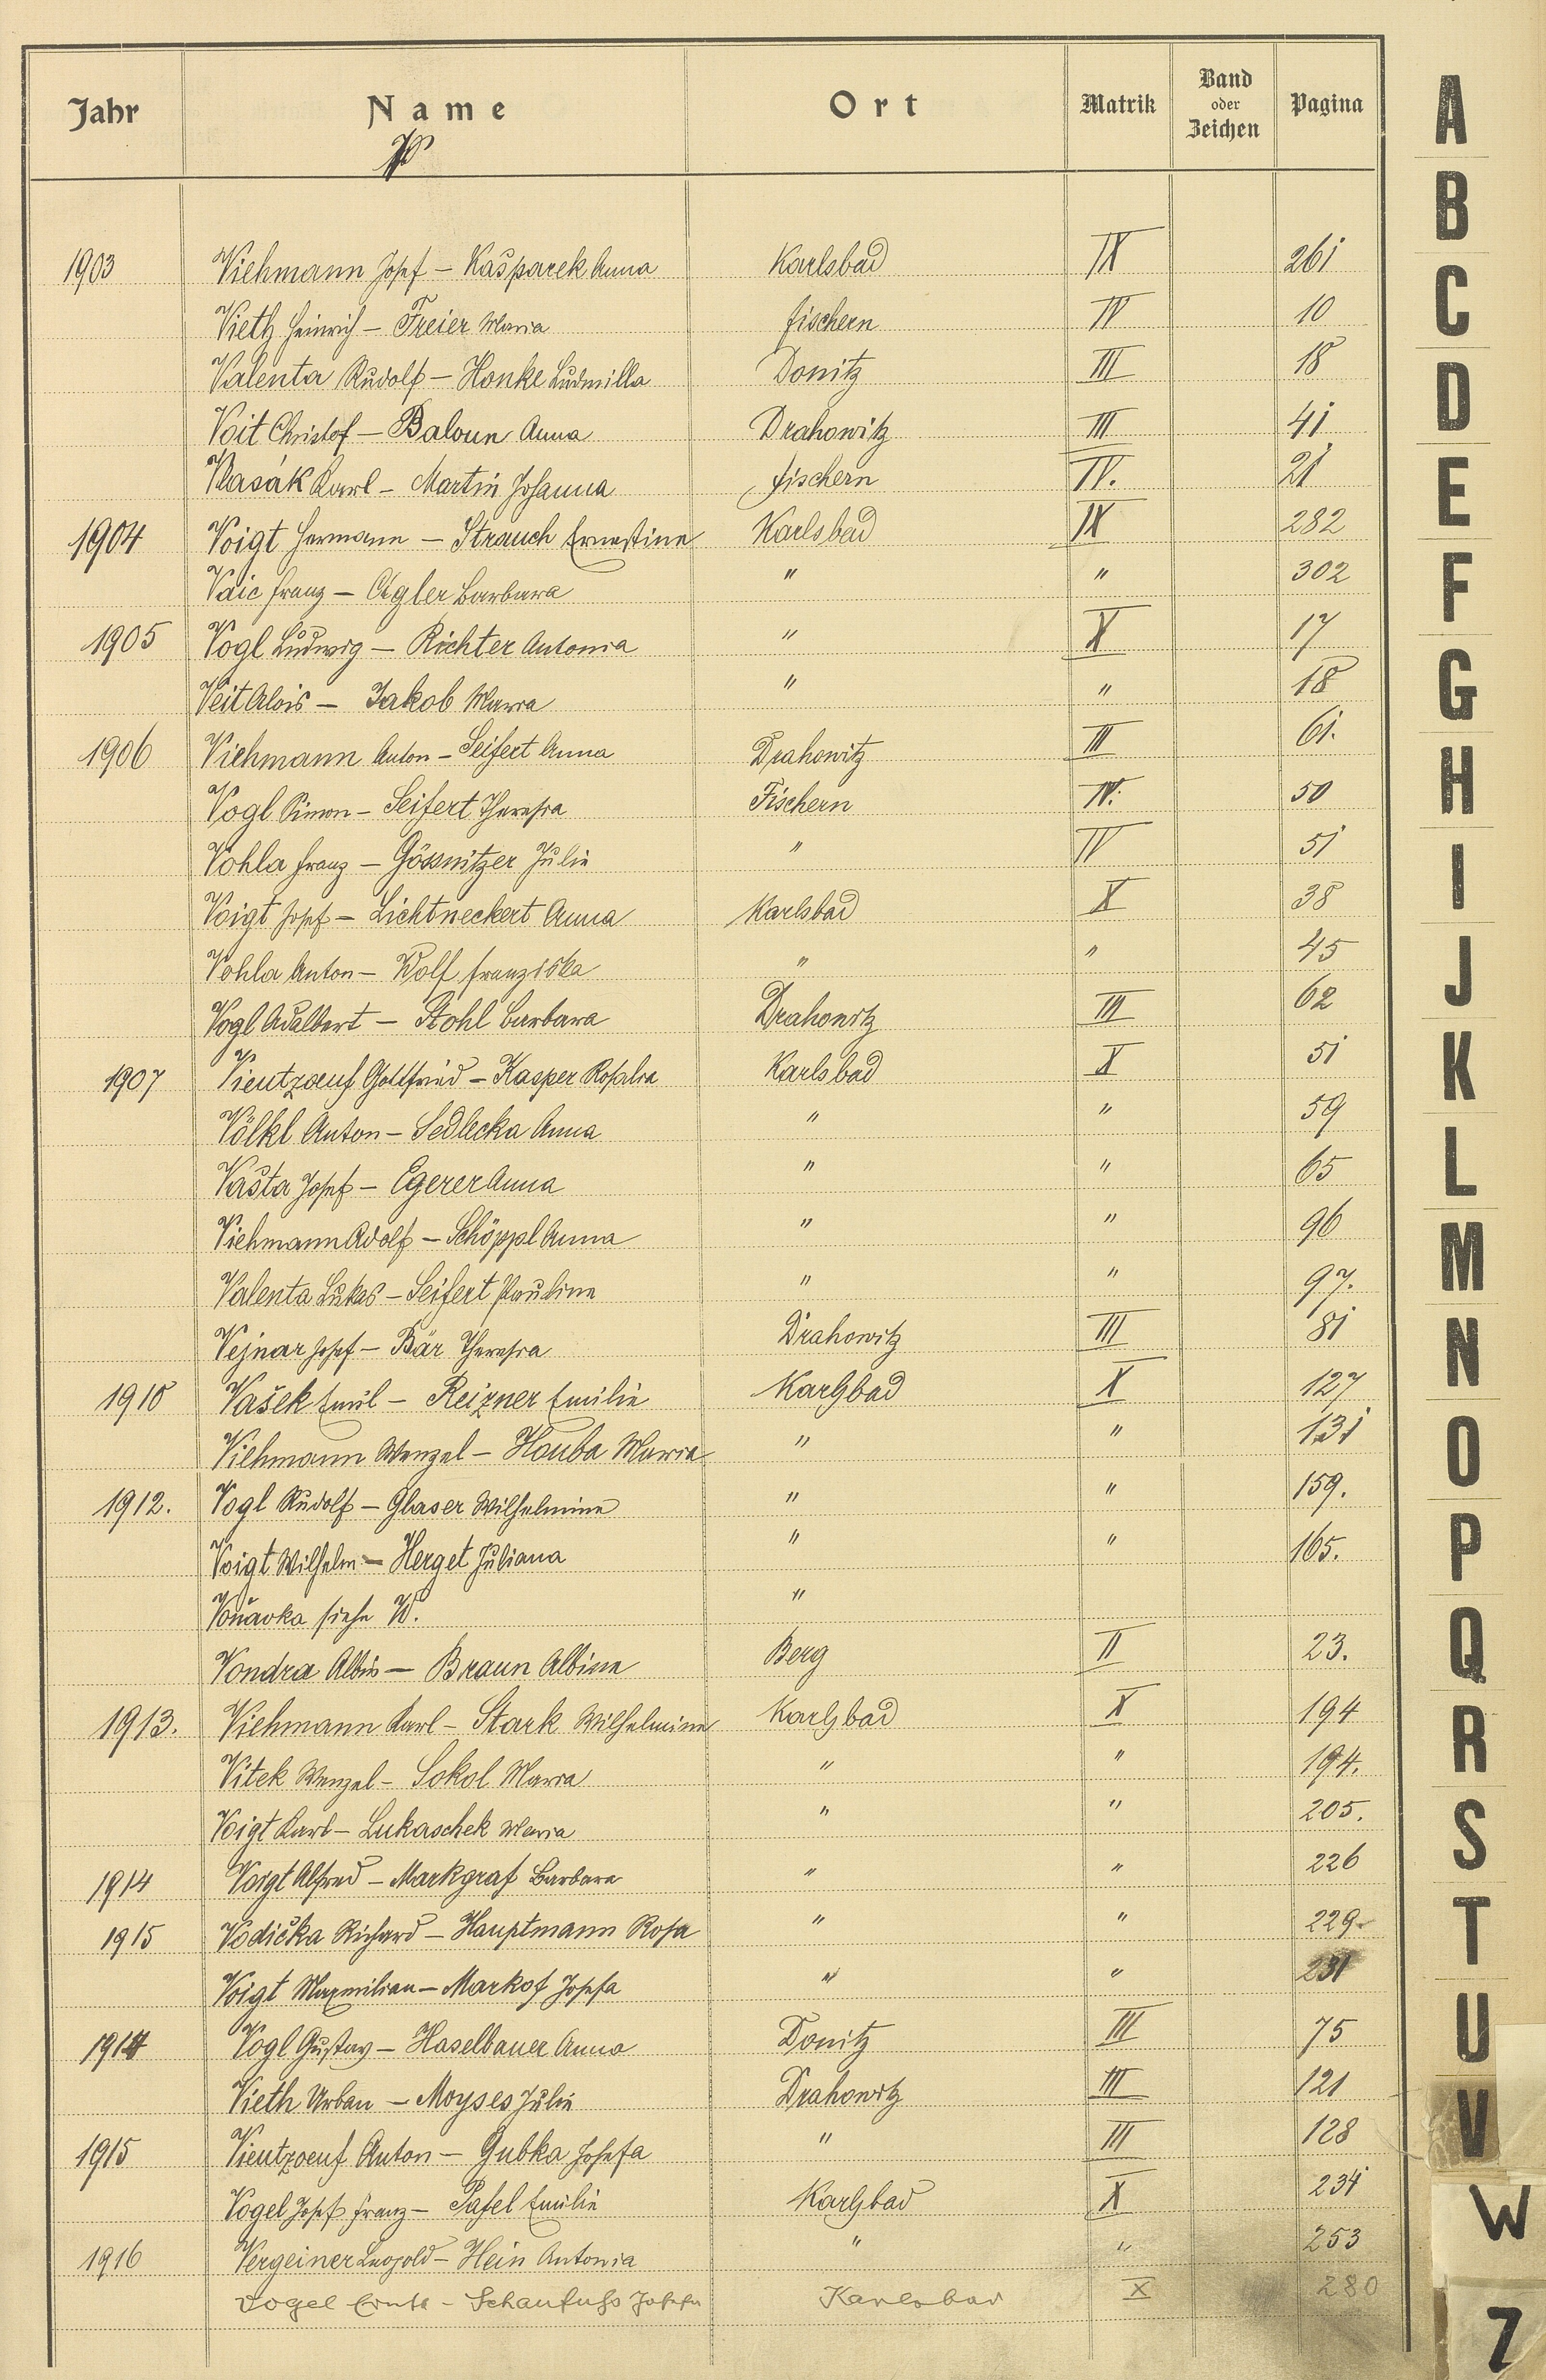 Jahr Name Ort Matrik Band oder Zeichen Pagina
V
1903 Viehmann Josef – Kašparek Anna Karlsbad IX 261
Vieth Heinrich – Freier Maria Fischern IV 10
Valenta Rudolf – Honke Ludmilla Donitz III 18
Voit Christof – Baloun Anna Drahowitz III 41
Vlasák Karl – Martin Johanna Fischern IV. 21
1904 Voigt Hermann – Strauch Ernestine Karlsbad IX 282
Vaic Franz – Aigler Barbara " " 302
1905 Vogl Ludwig – Richter Antonia " X 17
Veit Alois – Jakob Maria " " 18
1906 Viehmann Anton – Seifert Anna Drahowitz III 61.
Vogl Simon – Seifert Theresia Fischern IV. 50
Vohla Franz – Gössnitzer Julie " IV 51
Voigt Josef – Lichtneckert Anna Karlsbad X 38
Vohla Anton – Wolf Franziska " " 45
Vogl Adalbert – Stohl Barbara Drahowitz III 62
1907 Vientzouf Gottfried – Kasper Rosalia Karlsbad X 51
Völkl Anton – Sedlecka Anna " " 59
Vašta Josef – Egerer Anna " " 65
Viehmann Adolf – Schöppl Anna " " 96
Valenta Lukas – Seifert Pauline " " 97.
Vejnar Josef – Bär Theresia Drahowitz III 81
1910 Vašek Emil – Reizner Emilie Karlsbad X 127
Viehmann Wenzel – Houba Maria " " 131
1912. Vogl Rudolf – Glaser Wilhelmine " " 159.
Voigt Wilhelm – Herget Juliana " " 165.
Voňavka siehe W. "
Vondra Albin – Braun Albine Berg II 23.
1913. Viehmann Karl – Stark Wilhelmine Karlsbad X 194
Vitek Wenzel – Sokol Maria " " 194.
Voigt Karl – Lukaschek Maria " " 205.
1914 Voigt Alfred – Markgraf Barbara " " 226
1915 Vodička Richard – Hauptmann Rosa " " 229.
Voigt Maxmilian – Markof Josefa " " 231
1914 Vogl Gustav – Haselbauer Anna Donitz III 75
Vieth Urban – Moyses Julie Drahowitz III 121
1915 Vientzouf Anton – Gubka Josefa " III 128
Vogel Josef Franz – Pafel Emilie Karlsbad X 234
1916 Vergeiner Leopold – Hein Antonia " " 253
Vogel Ernst – Schaufuß Josefa Karlsbad X 280
A
B
C
D
E
F
G
H
I
J
K
L
M
N
O
P
Q
R
S
T
U
V
W
Z